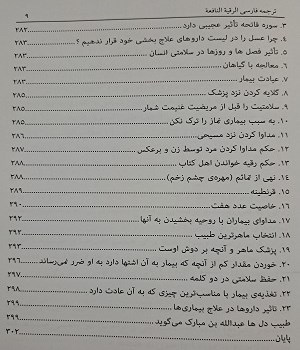 ترجمه فارسی الرقیة النافعة ۹
۳. سوره فاتحه تأثیر عجیبی دارد ۳۸۲
۴. چرا عسل را در لیست داروهای علاج بخشی خود قرار ندهیم ؟ ۳۸۳
۵. تأثیر فصل ها و روزها در سلامتی انسان ۳۸۳
۶. معالجه با گیاهان ۳۸۳
۷. عیادت بیمار ۳۸۳
۸. گلایه کردن نزد پزشک ۳۸۵
۹. سلامتیت را قبل از مریضیت غنیمت شمار ۳۸۵
۱۰. به سبب بیماری نماز را ترک نکن ۳۸۵
۱۱. مداوا کردن نزد مسیحی ۳۸۶
۱۲. حکم مداوا کردن مرد توسط زن و برعکس ۳۸۷
۱۳. حکم رقیه خواندن اهل کتاب ۳۸۸
۱۴. نهی از تمائم (مهره‌ی چشم زخم) ۳۸۸
۱۵. قرنطینه ۳۸۹
۱۶. خاصیت عدد هفت ۳۹۰
۱۷. مداوای بیماران با روحیه بخشیدن به آنها ۳۹۲
۱۸. انتخاب ماهرترین طبیب ۳۹۲
۱۹. پزشک ماهر و آنچه بر دوش اوست ۳۹۳
۲۰. خوردن مقدار کم از آنچه که بیمار به آن اشتها دارد به او ضرر نمی‌رساند ۳۹۶
۲۱. حفظ سلامتی در دو کلمه ۳۹۷
۲۲. تغذیه‌ی بیمار با مناسب‌ترین چیزی که به آن عادت دارد ۳۹۸
۲۳. تاثیر داروها در علاج بیماری‌ها ۳۹۹
طبیب دل ها عبدالله بن مبارک می‌گوید ۳۹۹
پایان ۴۰۲